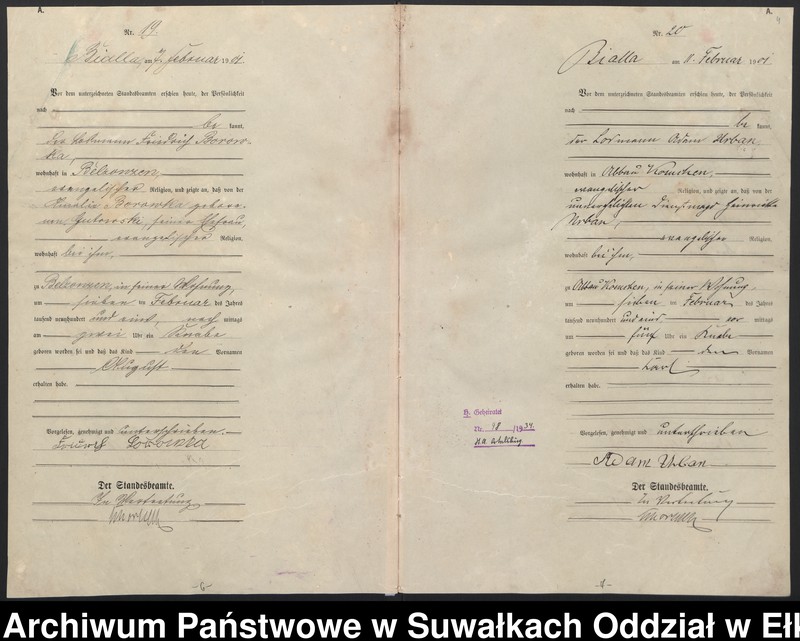 A.
Nr. 19.
Bialla, am 7. Februar 1901
Vor dem unterzeichneten Standesbeamten erschien heute, der Persönlichkeit
nach
be kannt,
der Losmann Friedrich Borow-
ka,
wohnhaft in Belzonzen,
evangelischer Religion, und zeigte an, daß von der
Amalie Borowka gebore-
nen, seiner Ehefrau,
evangelischer Religion,
wohnhaft bei ihm,
zu Belzonzen, in seiner Wohnung,
am sieben ten Februar des Jahres
tausend neunhundert und eins, nach mittags
um zwei Uhr ein Knabe
geboren worden sei und daß das Kind den Vornamen
August
erhalten habe.
Vorgelesen, genehmigt und unterschrieben.
Der Standesbeamte.
In Vertretung
A.
4
Nr. 20
Bialla am 8. Februar 1901
Vor dem unterzeichneten Standesbeamten erschien heute, der Persönlichkeit
nach
be kannt,
der Losmann Adam Urban,
wohnhaft in Abbau Komschen,
evangelischer Religion, und zeigte an, daß von der
unverehelichten Dienstmagd Heinriette
Urban,
evangelischer Religion,
wohnhaft bei ihm,
zu Abbau Komschen, in seiner Wohnung,
am sieben ten Februar des Jahres
tausend neunhundert und eins vor mittags
um fünf Uhr ein Knabe
geboren worden sei und daß das Kind den Vornamen
Karl
erhalten habe.
H. Geheiratet
Nr. 98 /1934
Vorgelesen, genehmigt und unterschrieben
Adam Urban
Der Standesbeamte.
In Vertretung
Archiwum Państwowe w Suwałkach Oddział w Eł